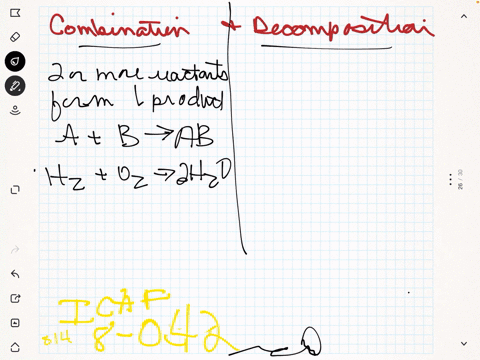 Combination + Decomposition
2 or more reactants
form 1 product
A + B → AB
H2 + O2 → 2H2O
ICAF
814 8-042
26 / 30